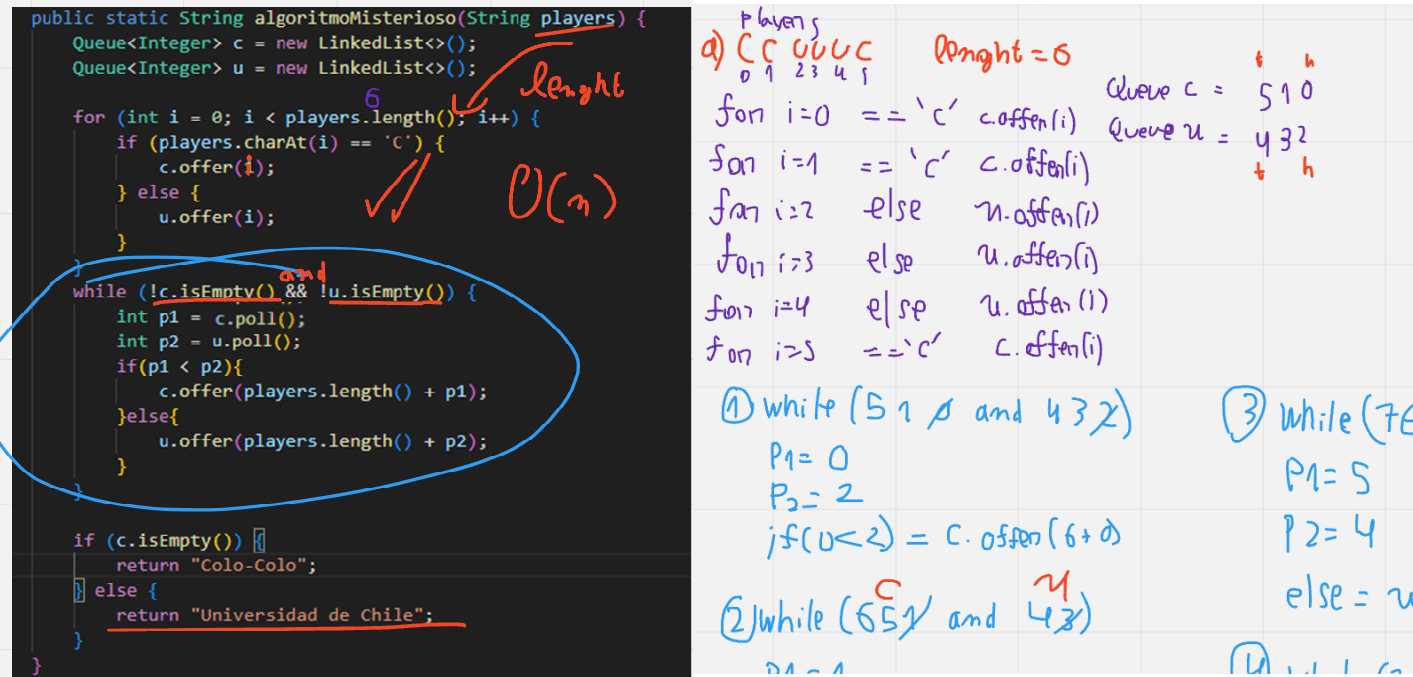 public static String algoritmoMisterioso(String players) {
Queue<Integer> c = new LinkedList<>();
Queue<Integer> u = new LinkedList<>();
lenght
6
for (int i = 0; i < players.length(); i++) {
if (players.charAt(i) == 'C') {
c.offer(i);
} else {
u.offer(i);
}
}
O(n)
and
while (!c.isEmpty() && !u.isEmpty()) {
int p1 = c.poll();
int p2 = u.poll();
if(p1 < p2){
c.offer(players.length() + p1);
}else{
u.offer(players.length() + p2);
}
}
if (c.isEmpty()) {
return "Colo-Colo";
} else {
return "Universidad de Chile";
}
}
players
a) C C U U U C lenght = 6
0 1 2 3 4 5
t h
Queue c = 5 1 0
Queue u = 4 3 2
t h
for i=0 == 'C' c.offer(i)
for i=1 == 'C' c.offer(i)
for i=2 else u.offer(i)
for i=3 else u.offer(i)
for i=4 else u.offer(i)
for i=5 == 'C' c.offer(i)
① while (5 1 0 and 4 3 2)
P1= 0
P2= 2
if(0<2) = c.offer(6+0)
C U
② while (6 5 1 and 4 3)
P1 = 1
③ while (7 6
P1= 5
P2= 4
else = u